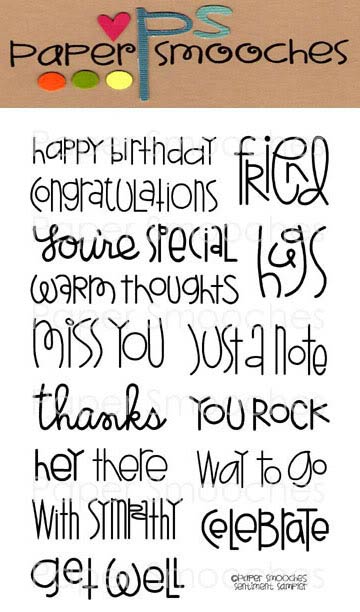 paper PS smooches
happy birthday
friend
congratulations
you're special
hugs
warm thoughts
miss you
just a note
thanks
you rock
hey there
way to go
with sympathy
celebrate
get well
©paper smooches
sentiment sampler
Paper Smooches
Paper Smooches
Paper Smooches
Paper Smooches
Paper Smooches
Paper Smooches